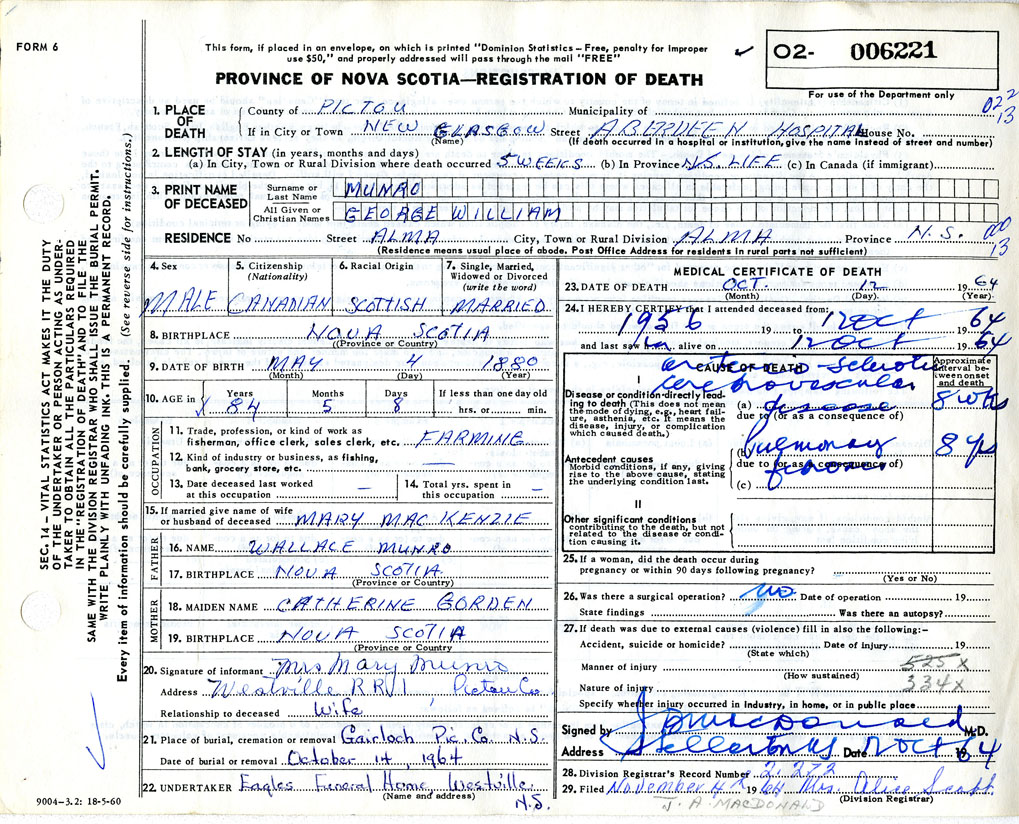 FORM 6
This form, if placed in an envelope, on which is printed "Dominion Statistics – Free, penalty for improper
use $50," and properly addressed will pass through the mail "FREE"
02- 006221
PROVINCE OF NOVA SCOTIA—REGISTRATION OF DEATH
For use of the Department only
022
13
SEC. 14 – VITAL STATISTICS ACT MAKES IT THE DUTY
OF THE UNDERTAKER OR PERSON ACTING AS UNDER-
TAKER TO OBTAIN ALL THE PARTICULARS REQUIRED
IN THE "REGISTRATION OF DEATH" AND TO FILE THE
SAME WITH THE DIVISION REGISTRAR WHO SHALL ISSUE THE BURIAL PERMIT.
WRITE PLAINLY WITH UNFADING INK. THIS IS A PERMANENT RECORD.
Every item of information should be carefully supplied. (See reverse side for instructions.)
1. PLACE OF DEATH County of PICTOU Municipality of
If in City or Town NEW GLASGOW Street ABERDEEN HOSPITAL House No.
(Name) (If death occurred in a hospital or institution, give the name instead of street and number)
2. LENGTH OF STAY (in years, months and days)
(a) In City, Town or Rural Division where death occurred 5 WEEKS (b) In Province N.S. LIFE (c) In Canada (if immigrant)
3. PRINT NAME OF DECEASED Surname or Last Name MUNRO
All Given or Christian Names GEORGE WILLIAM
RESIDENCE No Street ALMA City, Town or Rural Division ALMA Province N.S. 000
13
(Residence means usual place of abode. Post Office Address for residents in rural parts not sufficient)
4. Sex 5. Citizenship (Nationality) 6. Racial Origin 7. Single, Married, Widowed or Divorced (write the word)
MALE CANADIAN SCOTTISH MARRIED
8. BIRTHPLACE NOVA SCOTIA
(Province or Country)
9. DATE OF BIRTH MAY 4 1880
(Month) (Day) (Year)
10. AGE in Years Months Days If less than one day old
84 5 8 hrs. or min.
OCCUPATION
11. Trade, profession, or kind of work as
fisherman, office clerk, sales clerk, etc. FARMING
12. Kind of industry or business, as fishing,
bank, grocery store, etc. —
13. Date deceased last worked
at this occupation –
14. Total yrs. spent in
this occupation –
15. If married give name of wife
or husband of deceased MARY MAC KENZIE
FATHER
16. NAME WALLACE MUNRO
17. BIRTHPLACE NOVA SCOTIA
(Province or Country)
MOTHER
18. MAIDEN NAME CATHERINE GORDEN
19. BIRTHPLACE NOVA SCOTIA
(Province or Country)
20. Signature of informant Mrs Mary Munro
Address Westville RR1 Pictou Co
Relationship to deceased Wife
21. Place of burial, cremation or removal Gairloch Pic. Co. N.S.
Date of burial or removal October 14, 1964
22. UNDERTAKER Eagles Funeral Home Westville.
(Name and address) N.S.
9004–3.2: 18-5-60
MEDICAL CERTIFICATE OF DEATH
23. DATE OF DEATH OCT. 12 1964
(Month) (Day) (Year)
24. I HEREBY CERTIFY that I attended deceased from:
1956 19 to 12 OCT 1964
and last saw him alive on 12 OCT 1964
CAUSE OF DEATH
Approximate interval between onset and death
arterio-sclerotic
cerebrovascular
I
Disease or condition directly leading to death (This does not mean the mode of dying, e.g., heart failure, asthenia, etc. It means the disease, injury, or complication which caused death.)
(a) disease 8 wks
due to (or as a consequence of)
Antecedent causes
Morbid conditions, if any, giving rise to the above cause, stating the underlying condition last.
(b) Pulmonary 8 yrs
due to (or as a consequence of)
(c)
II
Other significant conditions
contributing to the death, but not related to the disease or condition causing it.
25. If a woman, did the death occur during
pregnancy or within 90 days following pregnancy?
(Yes or No)
26. Was there a surgical operation? no Date of operation 19
State findings Was there an autopsy?
27. If death was due to external causes (violence) fill in also the following:–
Accident, suicide or homicide? Date of injury 19
(State which)
525 X
Manner of injury
(How sustained)
334 X
Nature of injury
Specify whether injury occurred in Industry, in home, or in public place
Signed by MacDonald M.D.
Address Stellarton NS Date 12 OCT 1964
28. Division Registrar's Record Number 2,272
29. Filed November 4 1964 Mrs. Alice Scott
(Division Registrar)
J. A. MACDONALD